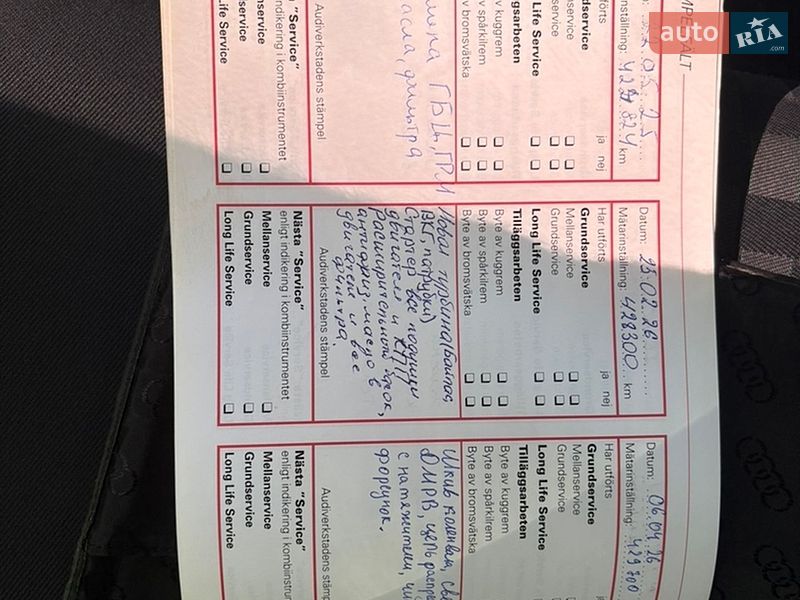 MPEL
ÄLT
auto RIA .com
05 25
Mätarinställning: 427.824 km
Har utförts ja nej
Grundservice
Mellanservice
Grundservice
Long Life Service
Tilläggsarbeten
Byte av kuggrem
Byte av spårkilrem
Byte av bromsvätska
ГБЦ, ГРМ
масла, фильтра
Audiverkstadens stämpel
Nästa "Service"
enligt indikering i kombiinstrumentet
Mellanservice
Grundservice
Long Life Service
Datum: 25.02.26
Mätarinställning: 428300 km
Har utförts ja nej
Grundservice
Mellanservice
Grundservice
Long Life Service
Tilläggsarbeten
Byte av kuggrem
Byte av spårkilrem
Byte av bromsvätska
Новая турбина (байпас,
ВКГ, патрубки)
Стартер все подушки
двигателя и КПП
расширительный бачок,
антифриз масло в
двигателе и все
фильтра.
Audiverkstadens stämpel
Nästa "Service"
enligt indikering i kombiinstrumentet
Mellanservice
Grundservice
Long Life Service
Datum: 06.04.26
Mätarinställning: 429700
Har utförts ja
Grundservice
Mellanservice
Grundservice
Long Life Service
Tilläggsarbeten
Byte av kuggrem
Byte av spårkilrem
Byte av bromsvätska
Шкив коленвала, све
ДМРВ, цепь распре
с натяжителем, чи
форсунок.
Audiverkstadens stämp
Nästa "Service"
enligt indikering i kombiinstrum
Mellanservice
Grundservice
Long Life Service